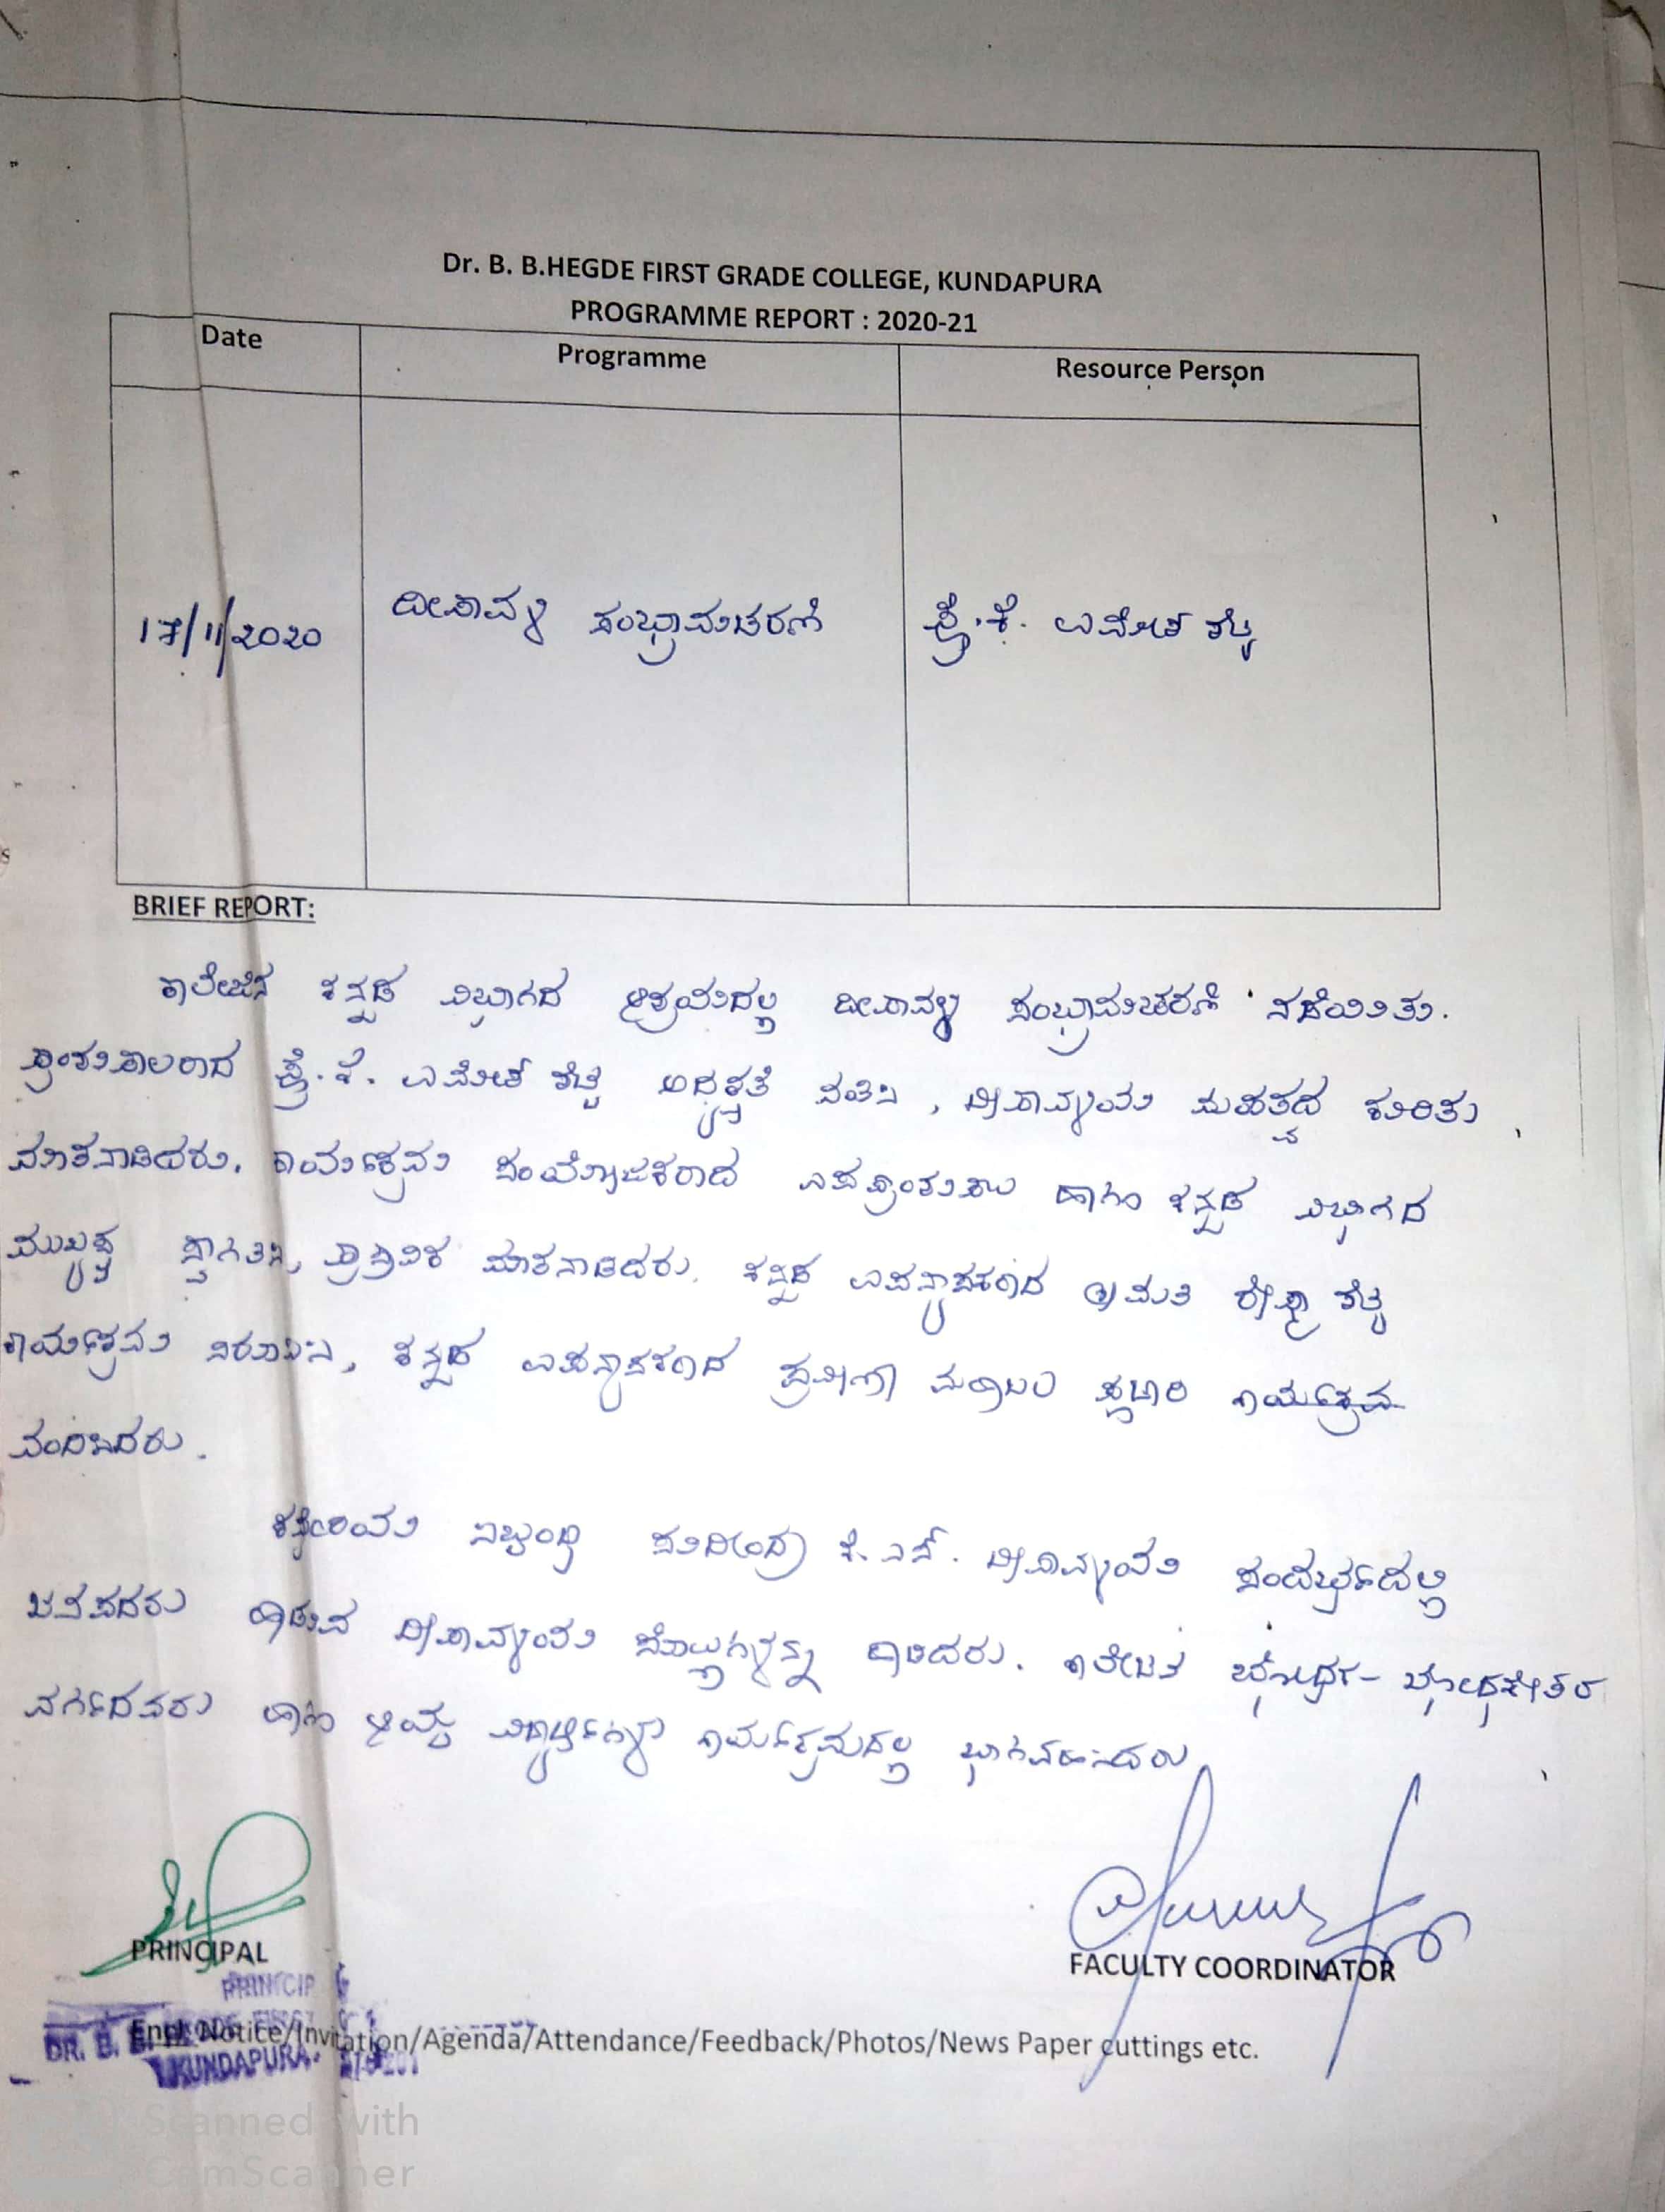 Dr. B. B.HEGDE FIRST GRADE COLLEGE, KUNDAPURA
PROGRAMME REPORT : 2020-21
Date Programme Resource Person
17/11/2020 ದೀಪಾವಳಿ ಸಂಭ್ರಮಾಚರಣೆ ಪ್ರೊ.ಕೆ. ಉಮೇಶ್ ಶೆಟ್ಟಿ
BRIEF REPORT:
ಕಾಲೇಜಿನ ಕನ್ನಡ ವಿಭಾಗದ ಆಶ್ರಯದಲ್ಲಿ ದೀಪಾವಳಿ ಸಂಭ್ರಮಾಚರಣೆ ನಡೆಯಿತು.
ಪ್ರಾಂಶುಪಾಲರಾದ ಪ್ರೊ.ಕೆ. ಉಮೇಶ್ ಶೆಟ್ಟಿ ಅಧ್ಯಕ್ಷತೆ ವಹಿಸಿ, ದೀಪಾವಳಿಯ ಮಹತ್ವದ ಕುರಿತು
ಮಾತನಾಡಿದರು. ಕಾರ್ಯಕ್ರಮ ಸಂಯೋಜಕರಾದ ಉಪಪ್ರಾಂಶುಪಾಲ ಹಾಗೂ ಕನ್ನಡ ವಿಭಾಗದ
ಮುಖ್ಯಸ್ಥ ಸ್ವಾಗತಿಸಿ, ಪ್ರಾಸ್ತಾವಿಕ ಮಾತನಾಡಿದರು. ಕನ್ನಡ ಉಪನ್ಯಾಸಕರಾದ ಶ್ರೀಮತಿ ರೇಷ್ಮಾ ಶೆಟ್ಟಿ
ಕಾರ್ಯಕ್ರಮ ನಿರೂಪಿಸಿ, ಕನ್ನಡ ಉಪನ್ಯಾಸಕರಾದ ಪ್ರವೀಣಾ ಪೂಜಾರಿ ಕಾರ್ಯಕ್ರಮ
ವಂದಿಸಿದರು.
ಕಛೇರಿಯ ಸಿಬ್ಬಂದಿ ಕೆ.ಎಸ್. ದೀಪಾವಳಿಯ ಸಂದರ್ಭದಲ್ಲಿ
ಜನಪದರು ಹಾಡುವ ದೀಪಾವಳಿಯ ಸೊಲ್ಲುಗಳನ್ನು ಹಾಡಿದರು. ಕಾಲೇಜಿನ ಭೋಧಕ- ಭೋಧಕೇತರ
ವರ್ಗದವರು ಹಾಗೂ ಆಯ್ದ ವಿದ್ಯಾರ್ಥಿಗಳು ಕಾರ್ಯಕ್ರಮದಲ್ಲಿ ಭಾಗವಹಿಸಿದರು
PRINCIPAL FACULTY COORDINATOR
Encl: Notice/Invitation/Agenda/Attendance/Feedback/Photos/News Paper cuttings etc.
DR. B. B.
KUNDAPURA
Scanned with
CamScanner